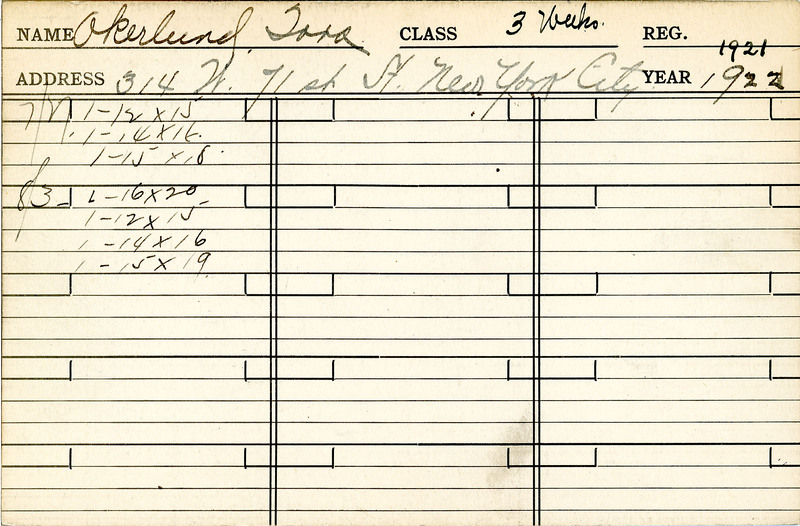 NAME Okerlund, Tora CLASS 3 Weeks. REG. 1921
ADDRESS 314 W. 71st St. New York City YEAR 1922
1-12 x 15
1-14 x 16.
1-15 x 18.
8/3- 1-16 x 20
1-12 x 15
1-14 x 16
1-15 x 19